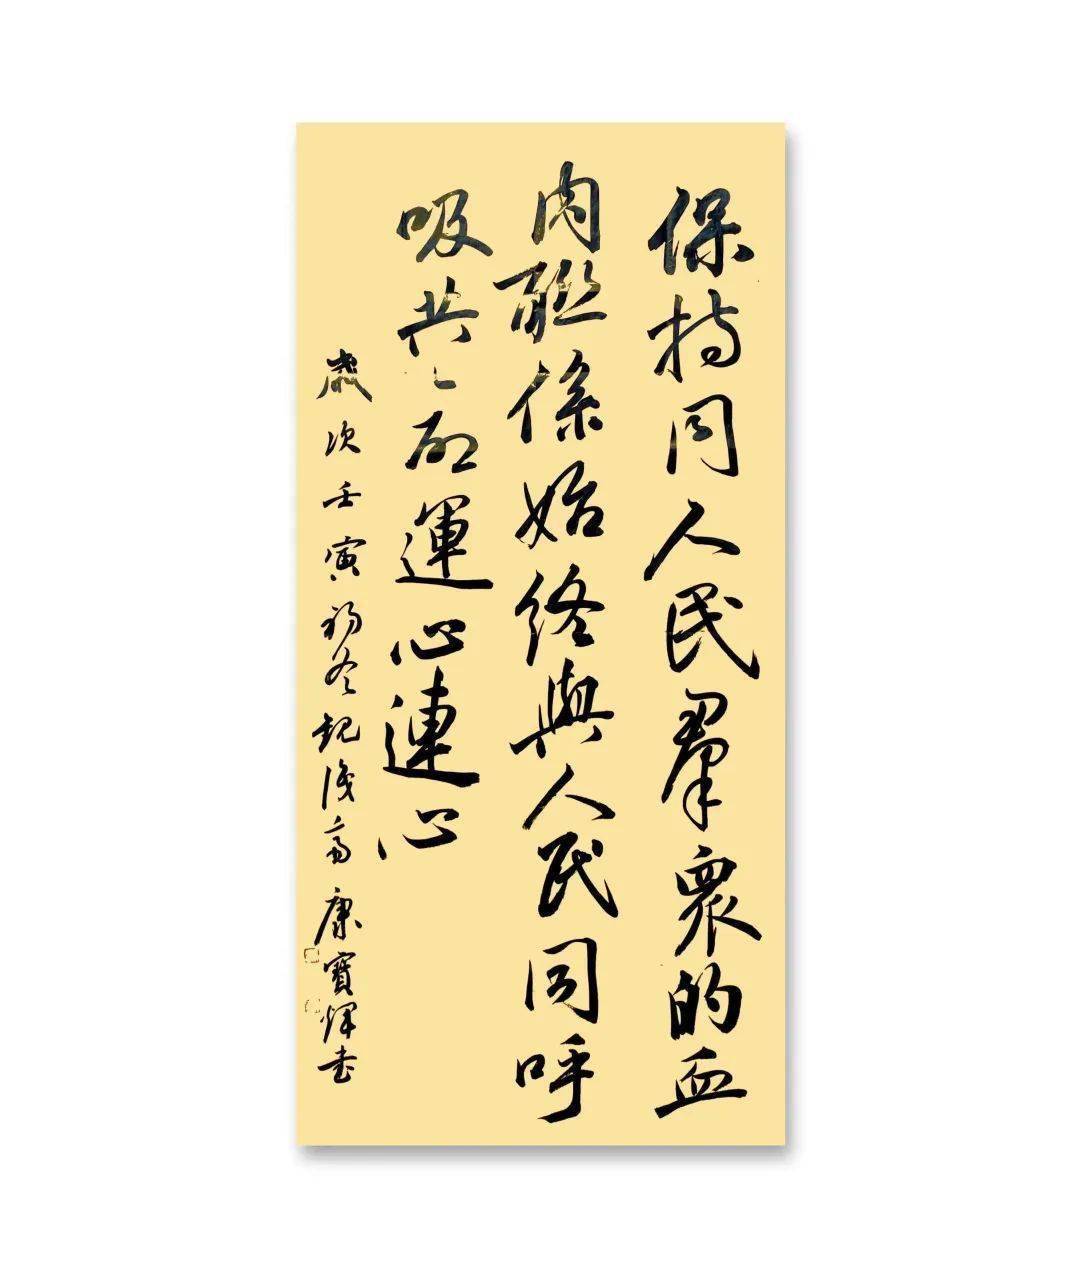 保持同人民羣衆的血
肉聯係始終與人民同呼
吸共命運心連心
歲次壬寅初冬齋康寶輝书